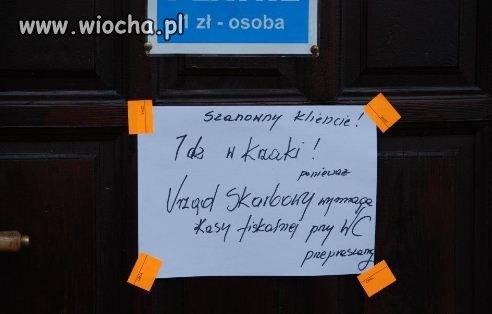 www.wiocha.pl
1 zł - osoba
Szanowny Kliencie!
Idź w Krzaki!
ponieważ
Urząd Skarbowy wymaga
Kasy fiskalnej przy WC
przepraszamy